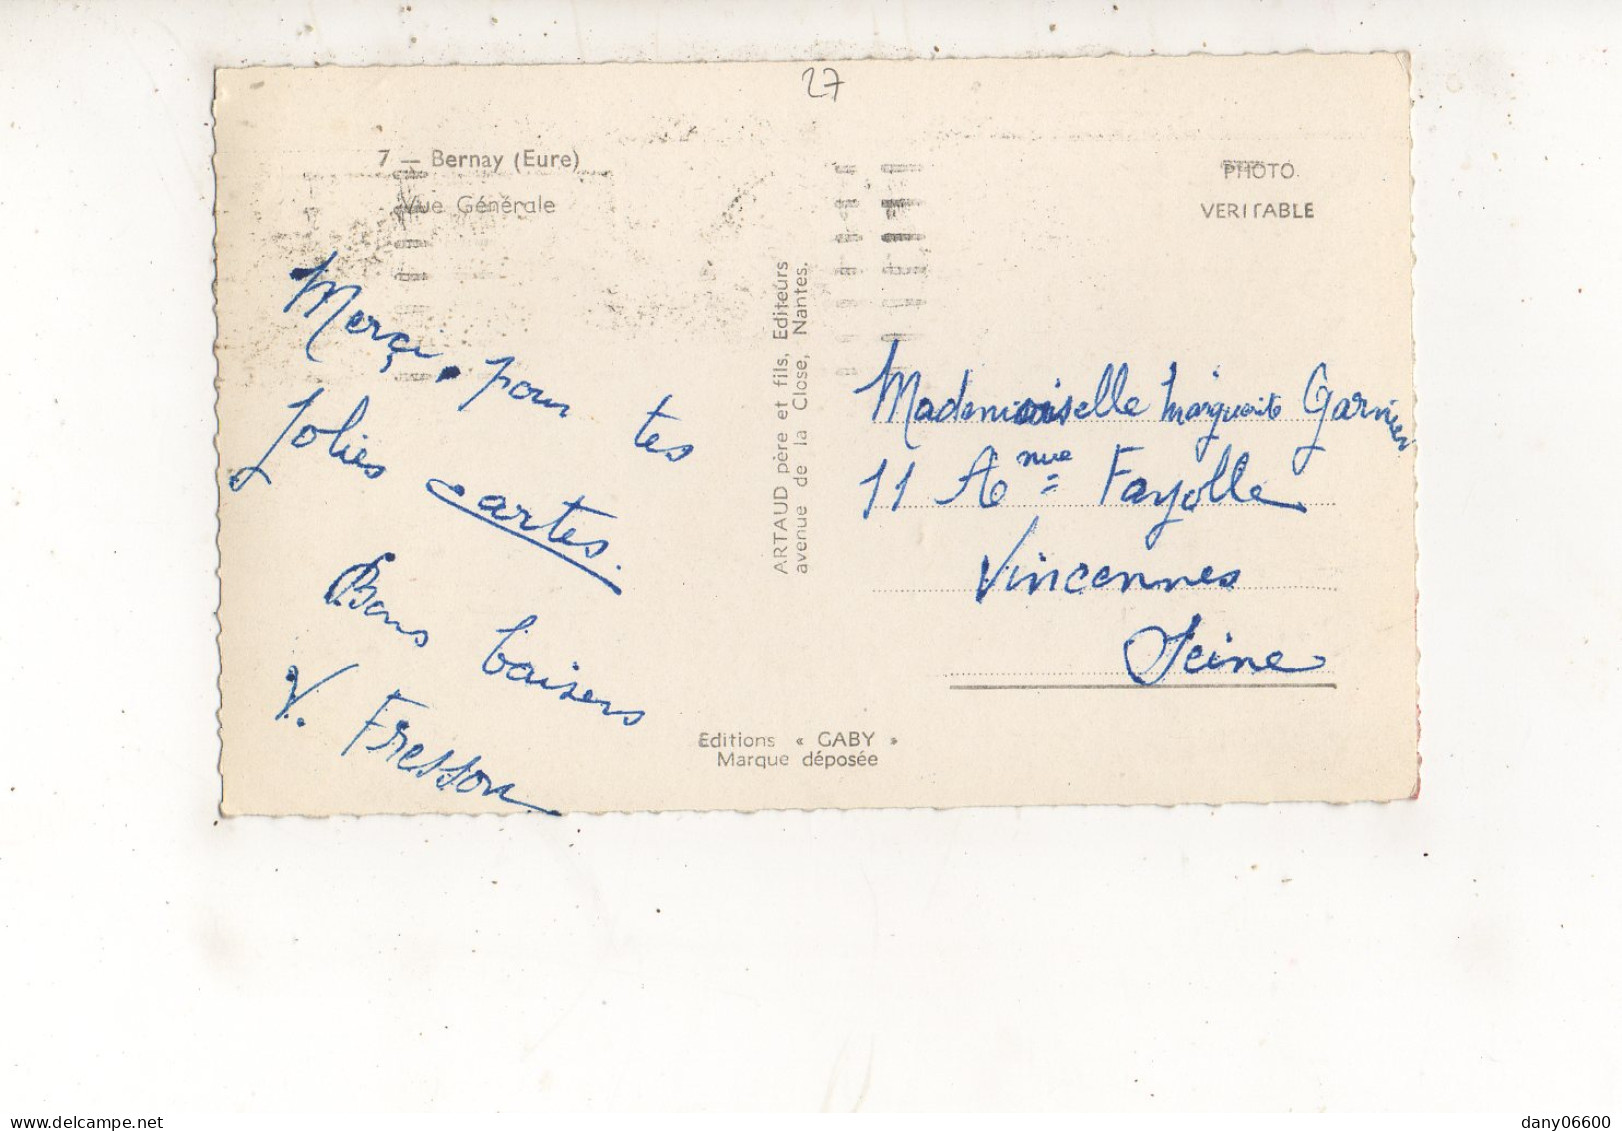 27
7 — Bernay (Eure)
Vue Générale
PHOTO
VERITABLE
Merçi, pour tes
Jolies cartes.
Bons baisers
V. Fresson
ARTAUD père et fils, Editeurs
avenue de la Close, Nantes.
Mademoiselle Marguerite Garnier
11 Anue Fayolle
Vincennes
Seine
Editions « GABY »
Marque déposée
dany06600